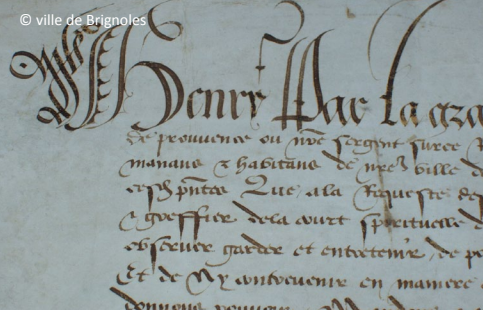 © ville de Brignoles
Henry Par la gra
de prouvence ou nõe sergent sur ce
manans & habitans de nrẽ ville de
Que, a la Requeste des
& goeffier de la court spirituelle
observer garder et entretenir, de
Et de Ny contrevenir en maniere
donnons pouvoir